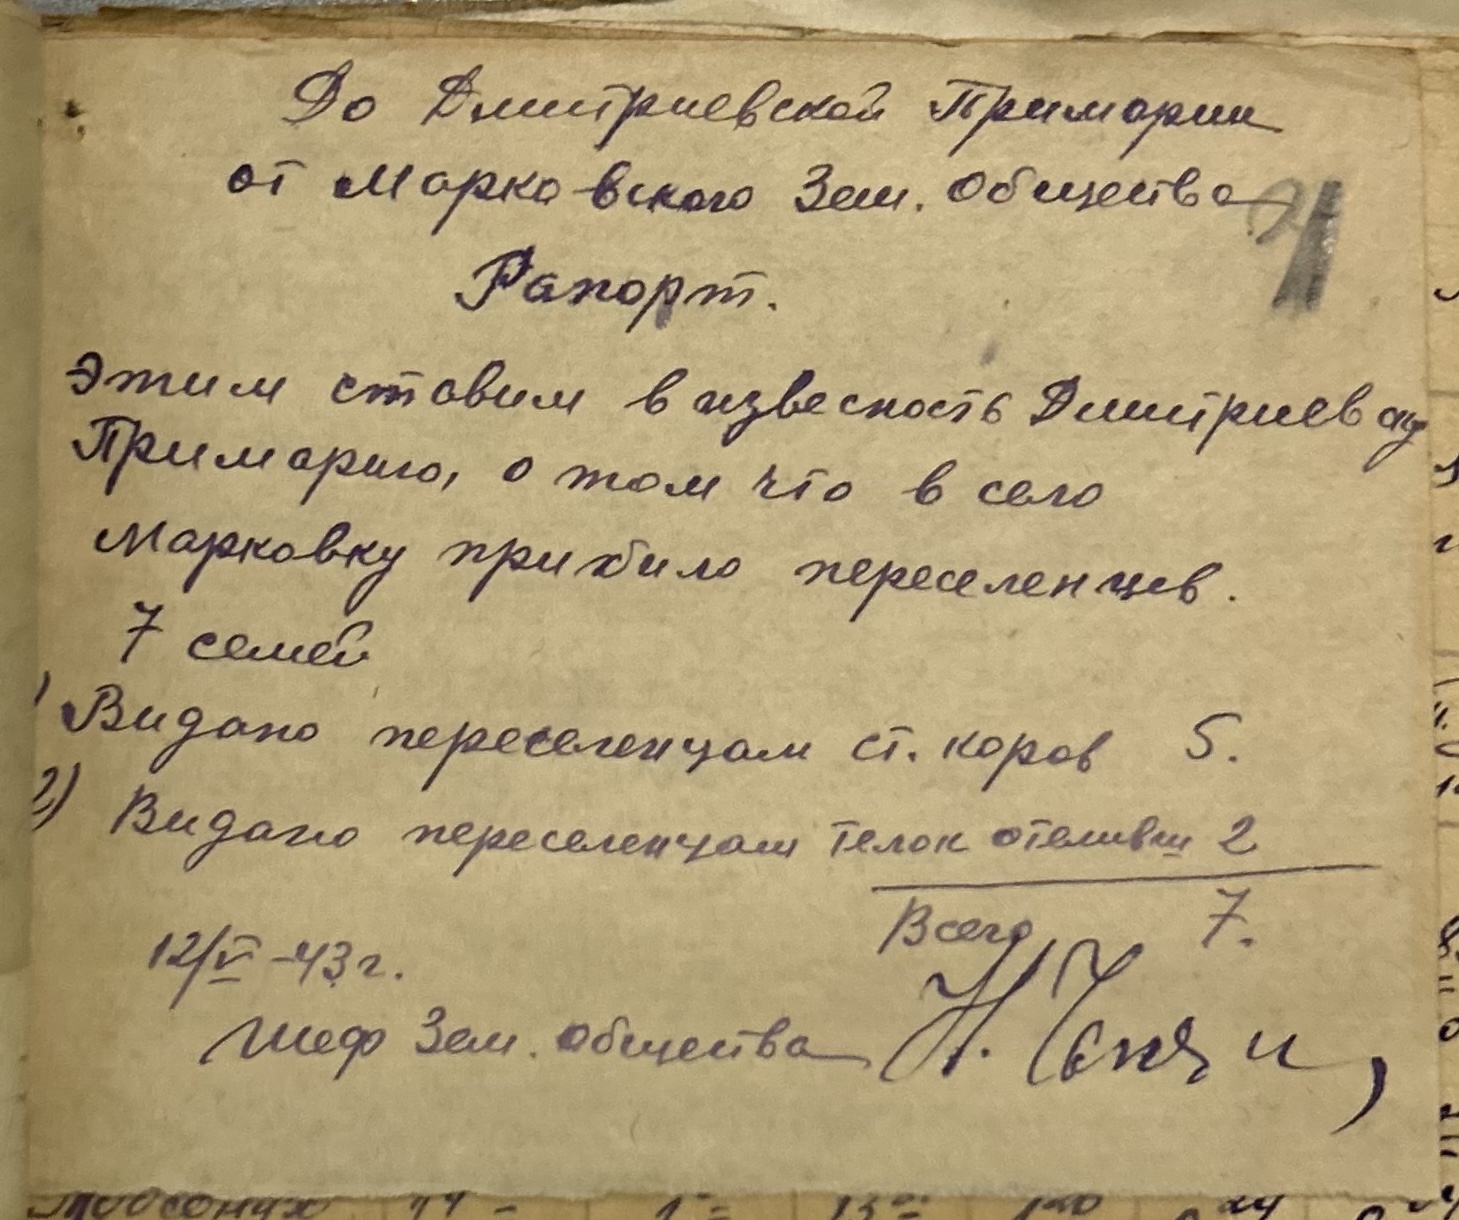 До Дмитриевской Примарии
от Марковского Зем. общества
21
Рапорт.
Этим ставим в извесность Дмитриевску
Примарию, о том что в село
Марковку прибило переселенцев.
7 семей
1) Видано переселенцам ст. коров 5.
2) Видано переселенцам телок отеливш 2
Всего 7.
12/V-43 г.
Шеф Зем. общества Н.